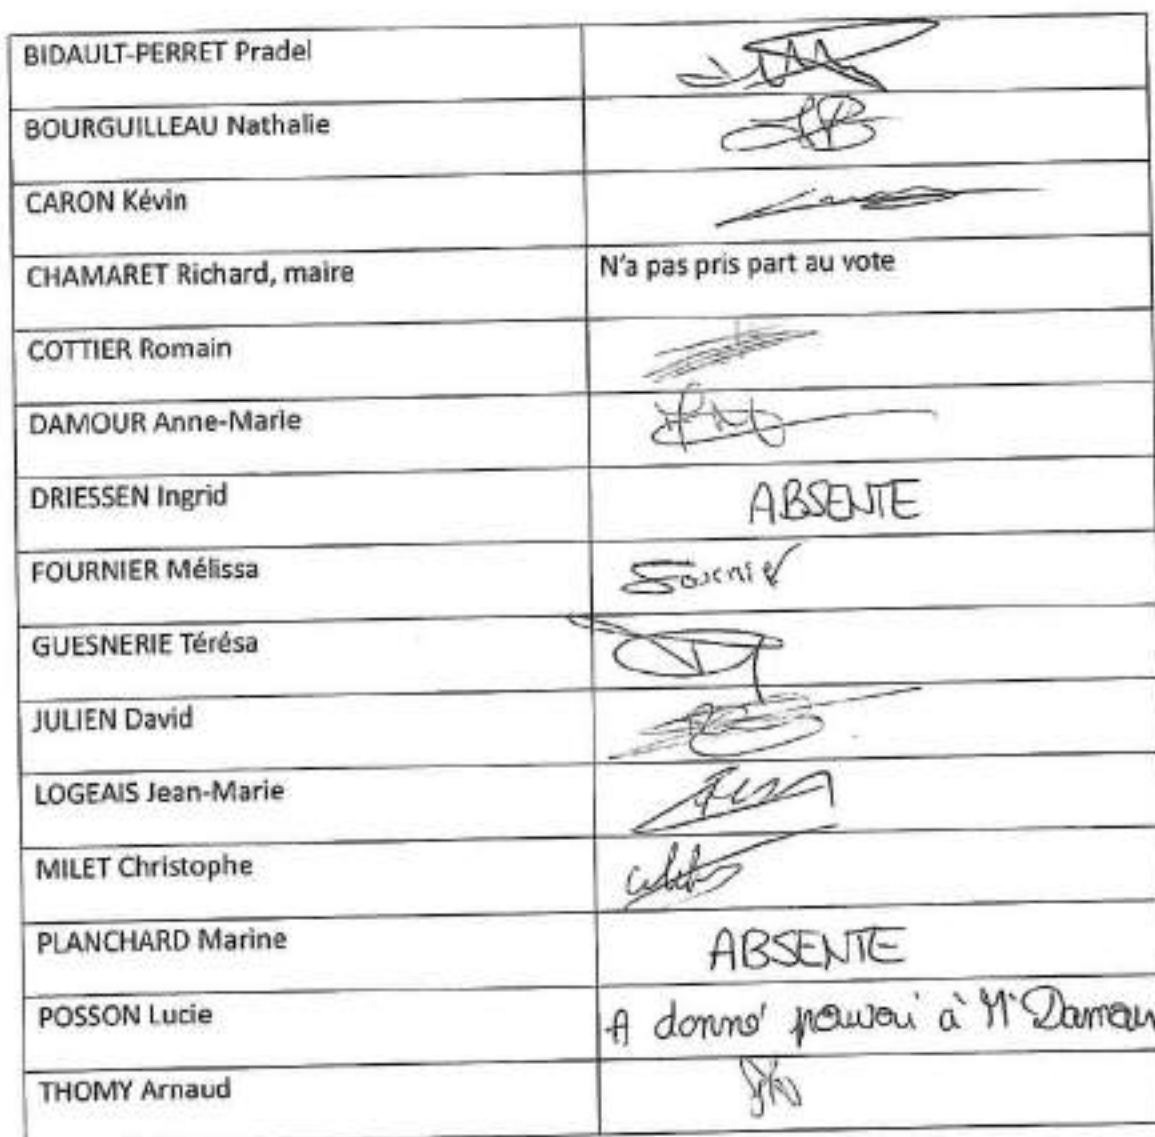 BIDAULT-PERRET Pradel
BOURGUILLEAU Nathalie
CARON Kévin
CHAMARET Richard, maire N'a pas pris part au vote
COTTIER Romain
DAMOUR Anne-Marie
DRIESSEN Ingrid ABSENTE
FOURNIER Mélissa Fournier
GUESNERIE Térésa
JULIEN David
LOGEAIS Jean-Marie
MILET Christophe
PLANCHARD Marine ABSENTE
POSSON Lucie A donné pouvoir à Damour
THOMY Arnaud